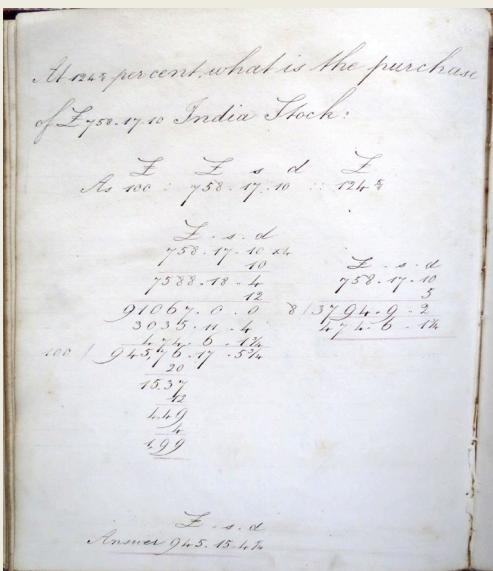 At 124⅝ per cent, what is the purchase
of £758.17.10 India Stock:
£ £ s d £
As 100 : 758 . 17 . 10 :: 124⅝
£ . s . d
758 . 17 . 10 x4
10
7588 . 18 . 4
12
91067 . 0 . 0
3035 . 11 . 4
474 . 6 . 1¾
100 / 945,76 . 17 . 5¾
20
15.37
12
4.49
4
1.99
£ . s . d
758 . 17 . 10
5
8 / 3794 . 9 . 2
474 . 6 . 1¾
£ . s . d
Answer 945 . 15 . 4¼